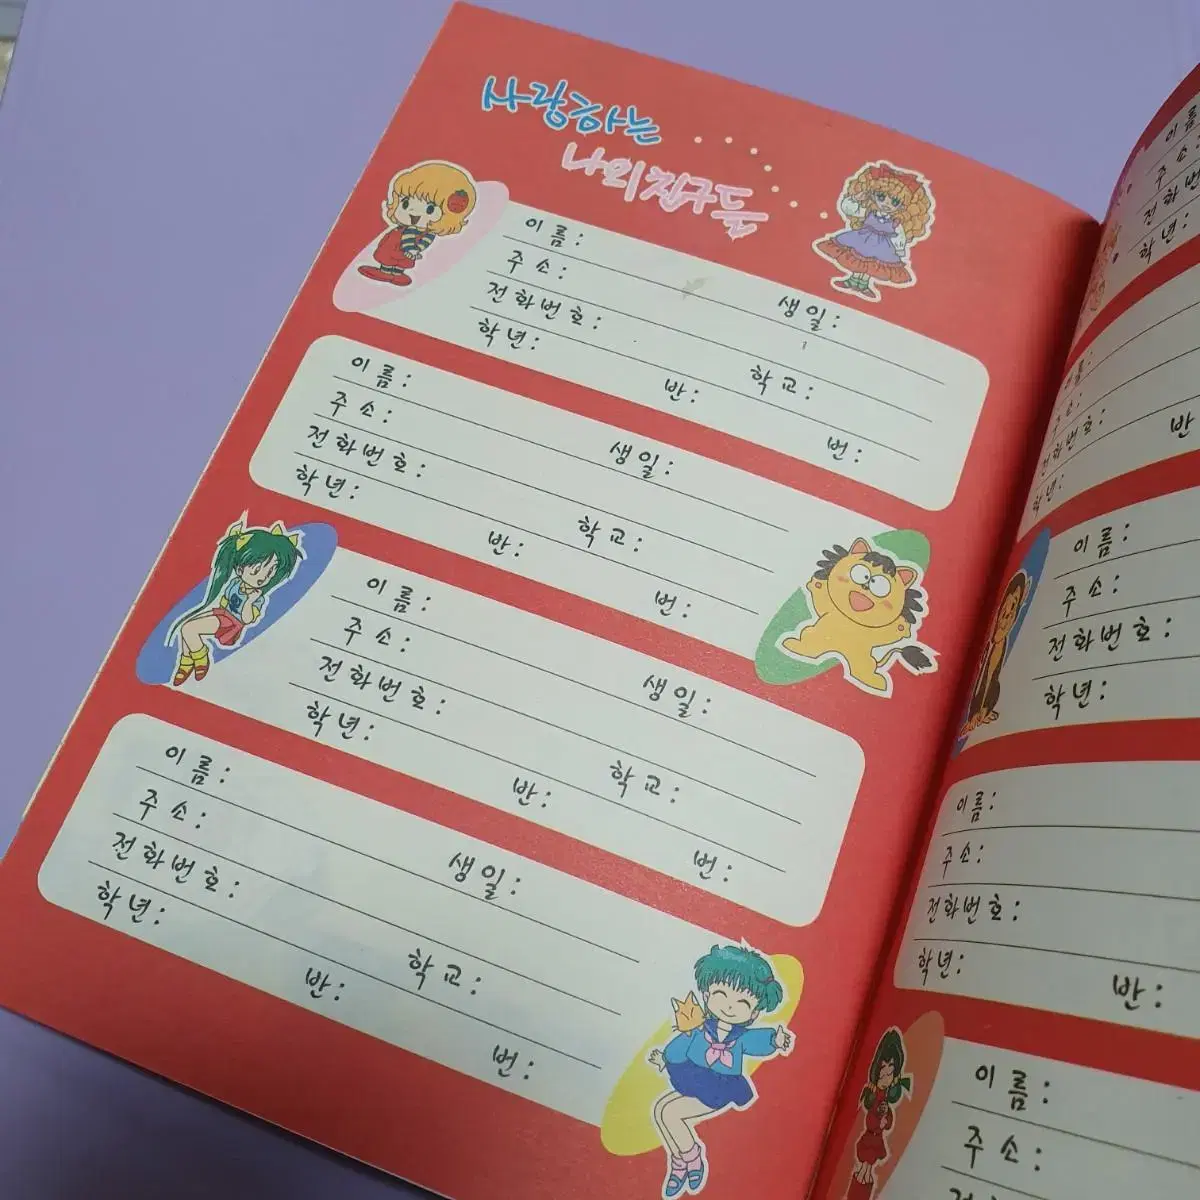 사랑하는
나의 친구들
이름:
주소: 생일:
전화번호:
학년: 반: 학교:
번:
이름:
주소: 생일:
전화번호:
학년: 반: 학교:
번:
이름:
주소: 생일:
전화번호:
학년: 반: 학교:
번:
이름:
주소: 생일:
전화번호:
학년: 반: 학교:
번:
이름
주소:
전화번
학년:
이름:
주소:
전화번호:
학년: 반
이름:
주소:
전화번호:
학년:
이름:
주소:
전화번호:
학년: 반:
이름:
주소: